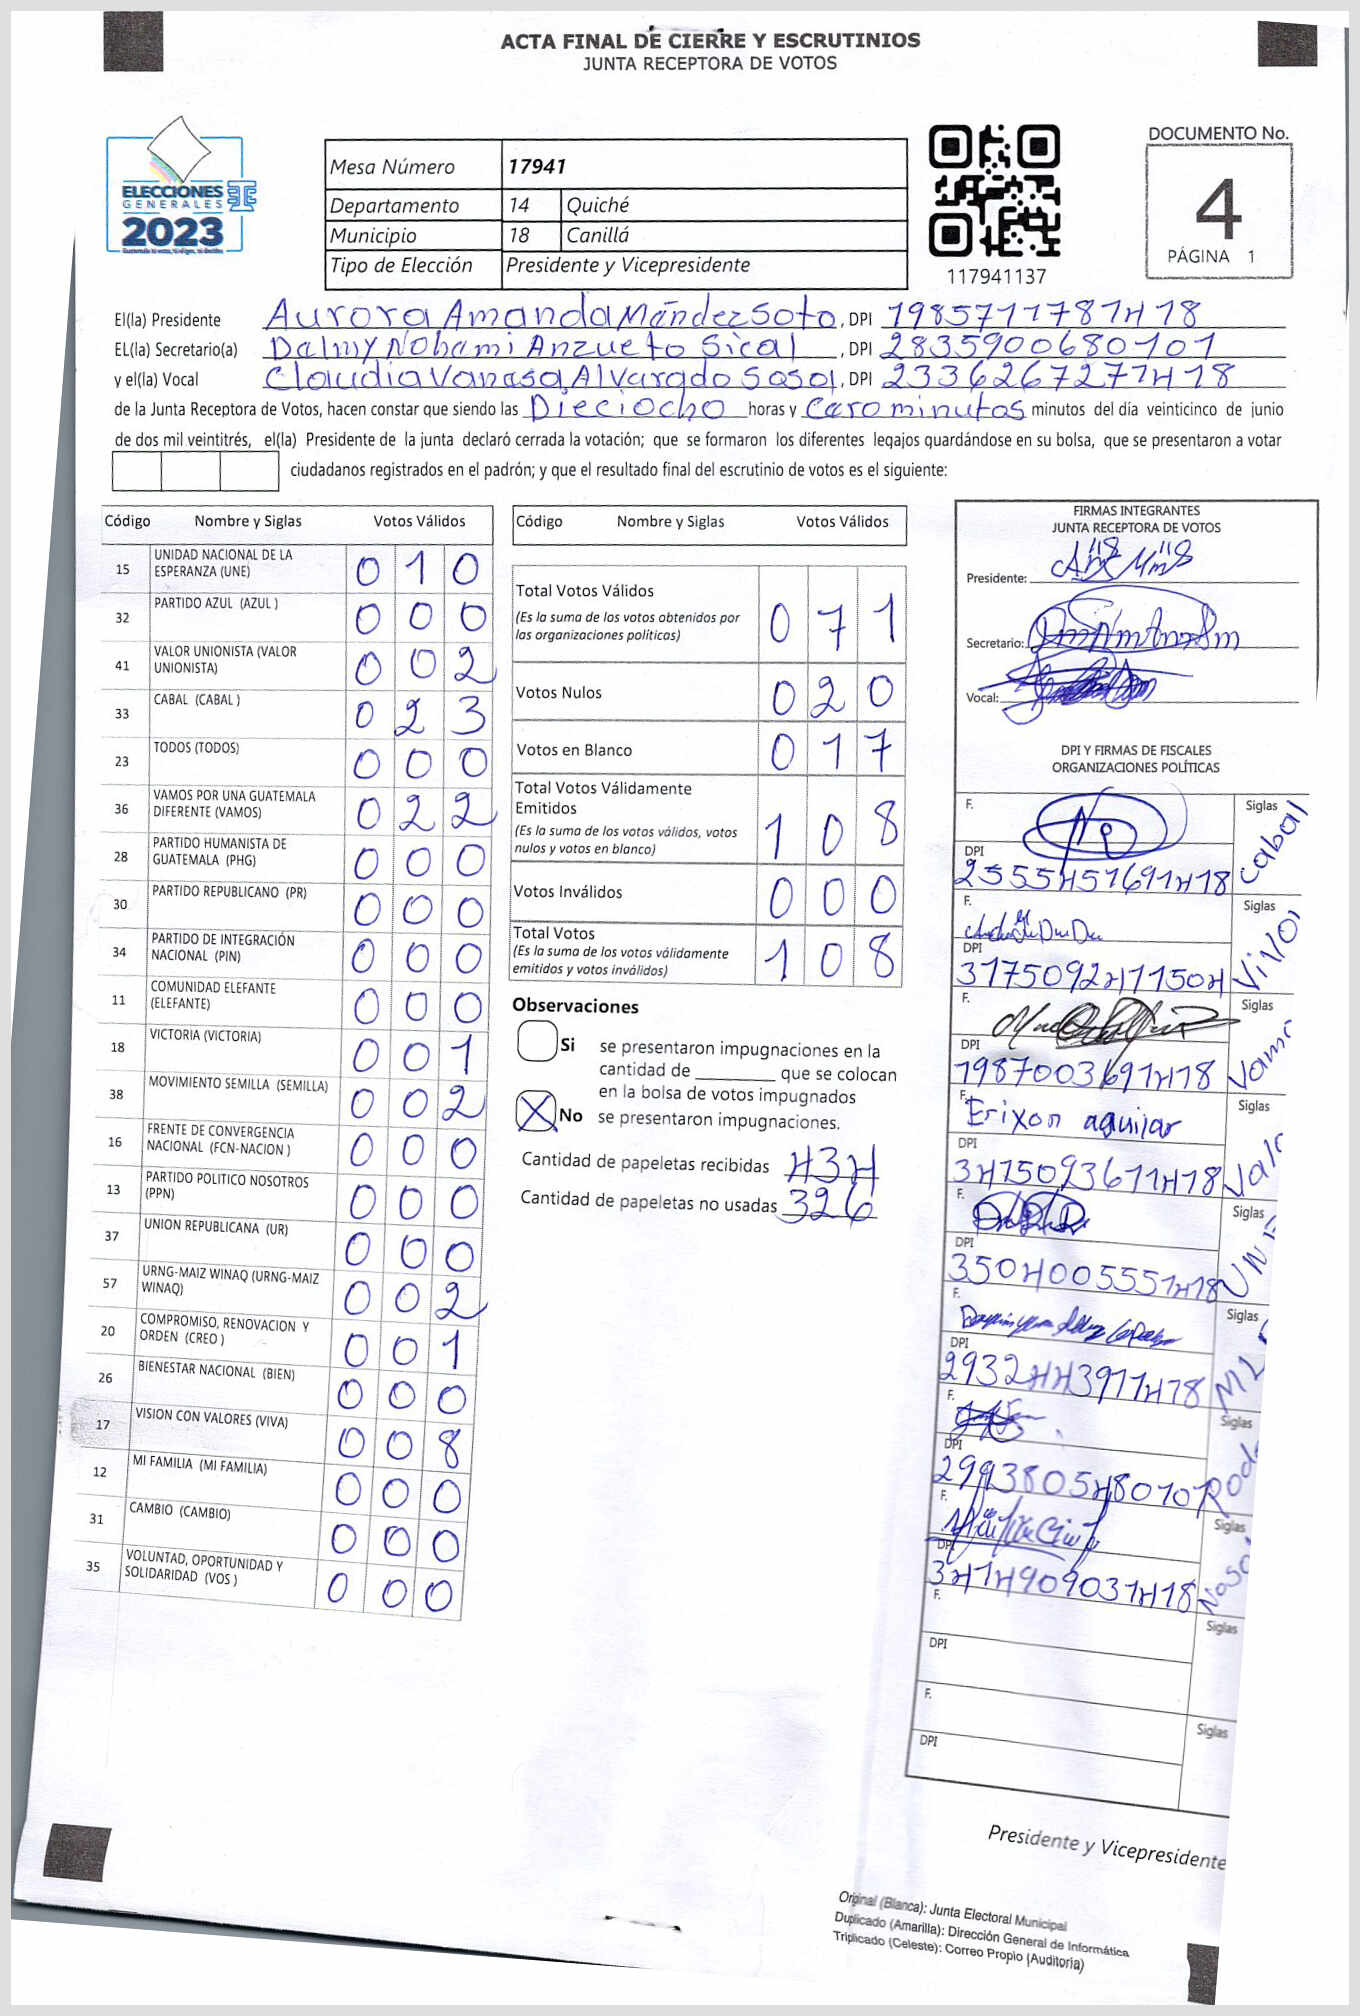 ACTA FINAL DE CIERRE Y ESCRUTINIOS
JUNTA RECEPTORA DE VOTOS
ELECCIONES
GENERALES
2023
Mesa Número 17941
Departamento 14 Quiché
Municipio 18 Canillá
Tipo de Elección Presidente y Vicepresidente
117941137
DOCUMENTO No.
4
PÁGINA 1
El(la) Presidente Aurora Amanda Méndez Soto, DPI 1985711781418
EL(la) Secretario(a) Dalmy Nohami Anzueto Sical, DPI 2835900680101
y el(la) Vocal Claudia Vanasa Alvarado Sosa, DPI 2336267271418
de la Junta Receptora de Votos, hacen constar que siendo las Dieciocho horas y cero minutos minutos del día veinticinco de junio
de dos mil veintitrés, el(la) Presidente de la junta declaró cerrada la votación; que se formaron los diferentes legajos guardándose en su bolsa, que se presentaron a votar
ciudadanos registrados en el padrón; y que el resultado final del escrutinio de votos es el siguiente:
Código Nombre y Siglas Votos Válidos
15 UNIDAD NACIONAL DE LA ESPERANZA (UNE) 0 1 0
32 PARTIDO AZUL (AZUL ) 0 0 0
41 VALOR UNIONISTA (VALOR UNIONISTA) 0 0 2
33 CABAL (CABAL ) 0 2 3
23 TODOS (TODOS) 0 0 0
36 VAMOS POR UNA GUATEMALA DIFERENTE (VAMOS) 0 2 2
28 PARTIDO HUMANISTA DE GUATEMALA (PHG) 0 0 0
30 PARTIDO REPUBLICANO (PR) 0 0 0
34 PARTIDO DE INTEGRACIÓN NACIONAL (PIN) 0 0 0
11 COMUNIDAD ELEFANTE (ELEFANTE) 0 0 0
18 VICTORIA (VICTORIA) 0 0 1
38 MOVIMIENTO SEMILLA (SEMILLA) 0 0 2
16 FRENTE DE CONVERGENCIA NACIONAL (FCN-NACION ) 0 0 0
13 PARTIDO POLITICO NOSOTROS (PPN) 0 0 0
37 UNION REPUBLICANA (UR) 0 0 0
57 URNG-MAIZ WINAQ (URNG-MAIZ WINAQ) 0 0 2
20 COMPROMISO, RENOVACION Y ORDEN (CREO ) 0 0 1
26 BIENESTAR NACIONAL (BIEN) 0 0 0
17 VISION CON VALORES (VIVA) 0 0 8
12 MI FAMILIA (MI FAMILIA) 0 0 0
31 CAMBIO (CAMBIO) 0 0 0
35 VOLUNTAD, OPORTUNIDAD Y SOLIDARIDAD (VOS ) 0 0 0
Código Nombre y Siglas Votos Válidos
Total Votos Válidos 0 7 1
(Es la suma de los votos obtenidos por
las organizaciones políticas)
Votos Nulos 0 2 0
Votos en Blanco 0 1 7
Total Votos Válidamente
Emitidos 1 0 8
(Es la suma de los votos válidos, votos
nulos y votos en blanco)
Votos Inválidos 0 0 0
Total Votos 1 0 8
(Es la suma de los votos válidamente
emitidos y votos inválidos)
Observaciones
Si se presentaron impugnaciones en la
cantidad de que se colocan
en la bolsa de votos impugnados
X No se presentaron impugnaciones.
Cantidad de papeletas recibidas 434
Cantidad de papeletas no usadas 326
FIRMAS INTEGRANTES
JUNTA RECEPTORA DE VOTOS
Presidente:
Secretario:
Vocal:
DPI Y FIRMAS DE FISCALES
ORGANIZACIONES POLÍTICAS
F. Siglas Cabal
DPI 2555451691418
F. Siglas
DPI 3175092411504
F. Siglas
DPI 1987003691418
F. Erixon aguilar Siglas
DPI 3415093611418
F. Siglas
DPI 3504005551418
F. Siglas
DPI 2932443911418
F. Siglas
DPI
F. Siglas
DPI 3414909031418
F. Siglas
DPI
F. Siglas
DPI
Presidente y Vicepresidente
Original (Blanca): Junta Electoral Municipal
Duplicado (Amarilla): Dirección General de Informática
Triplicado (Celeste): Correo Propio (Auditoría)